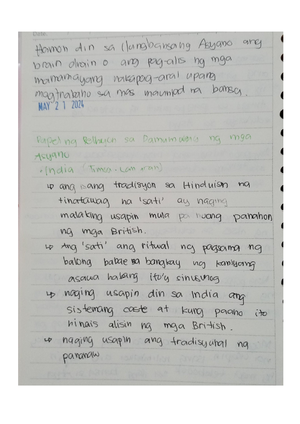 Hamon din sa ilang bansang Asyano ang
brain drain o ang pag-alis ng mga
mamamayang nakapag-aral upang
magtrabaho sa mas maunlad na bansa.
MAY 21 2026
Papel ng Relihiyon sa Pamumuhay ng mga
Asyano
India
↳ ang isang tradisyon sa Hinduism ng
tinatawag na 'sati' ay naging
malaking usapin mula pa noong panahon
ng mga British.
↳ Ang 'sati' ang ritwal ng pagsama ng
balong babae na bangkay ng kaniyang
asawa habang ito'y sinusunog
↳ naging usapin din sa India ang
sistemang caste at kung paano ito
ninais alisin ng mga British.
↳ naging usapin ang tradisyunal ng
pananaw